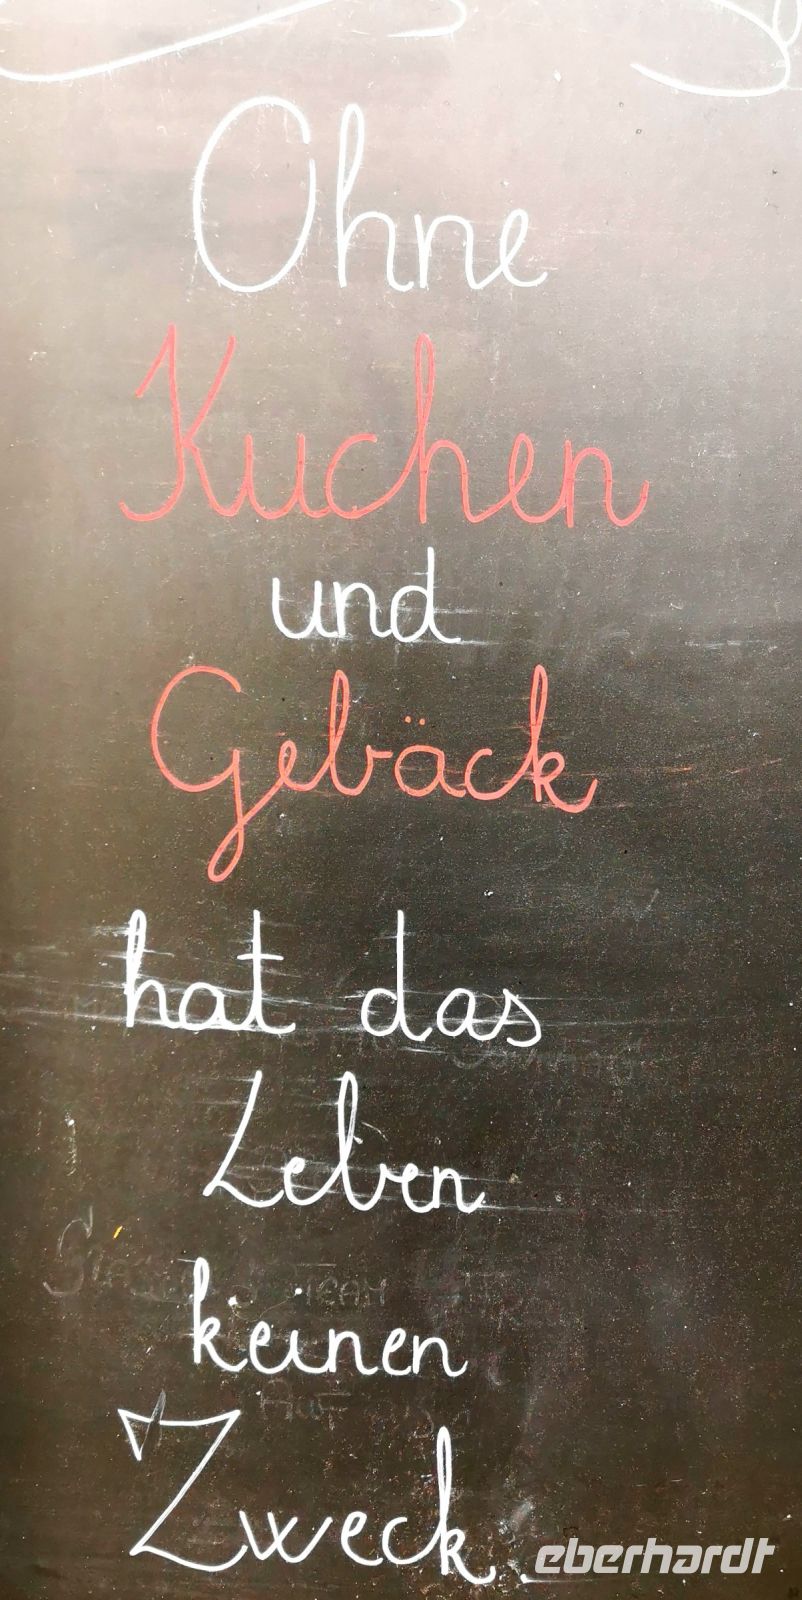 Ohne
Kuchen
und
Gebäck
hat das
Leben
keinen
Zweck.
eberhardt